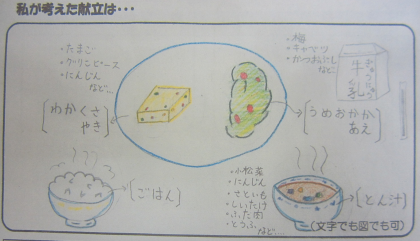 私が考えた献立は・・・
・たまご
・グリンピース
・にんじん
など…
わかくさ
やき
・梅
・キャベツ
・かつおぶし
など…
牛乳
うめおかか
あえ
ごはん
・小松菜
・にんじん
・さといも
・しいたけ
・ぶた肉
・とうふ
など…
とん汁
(文字でも図でも可)